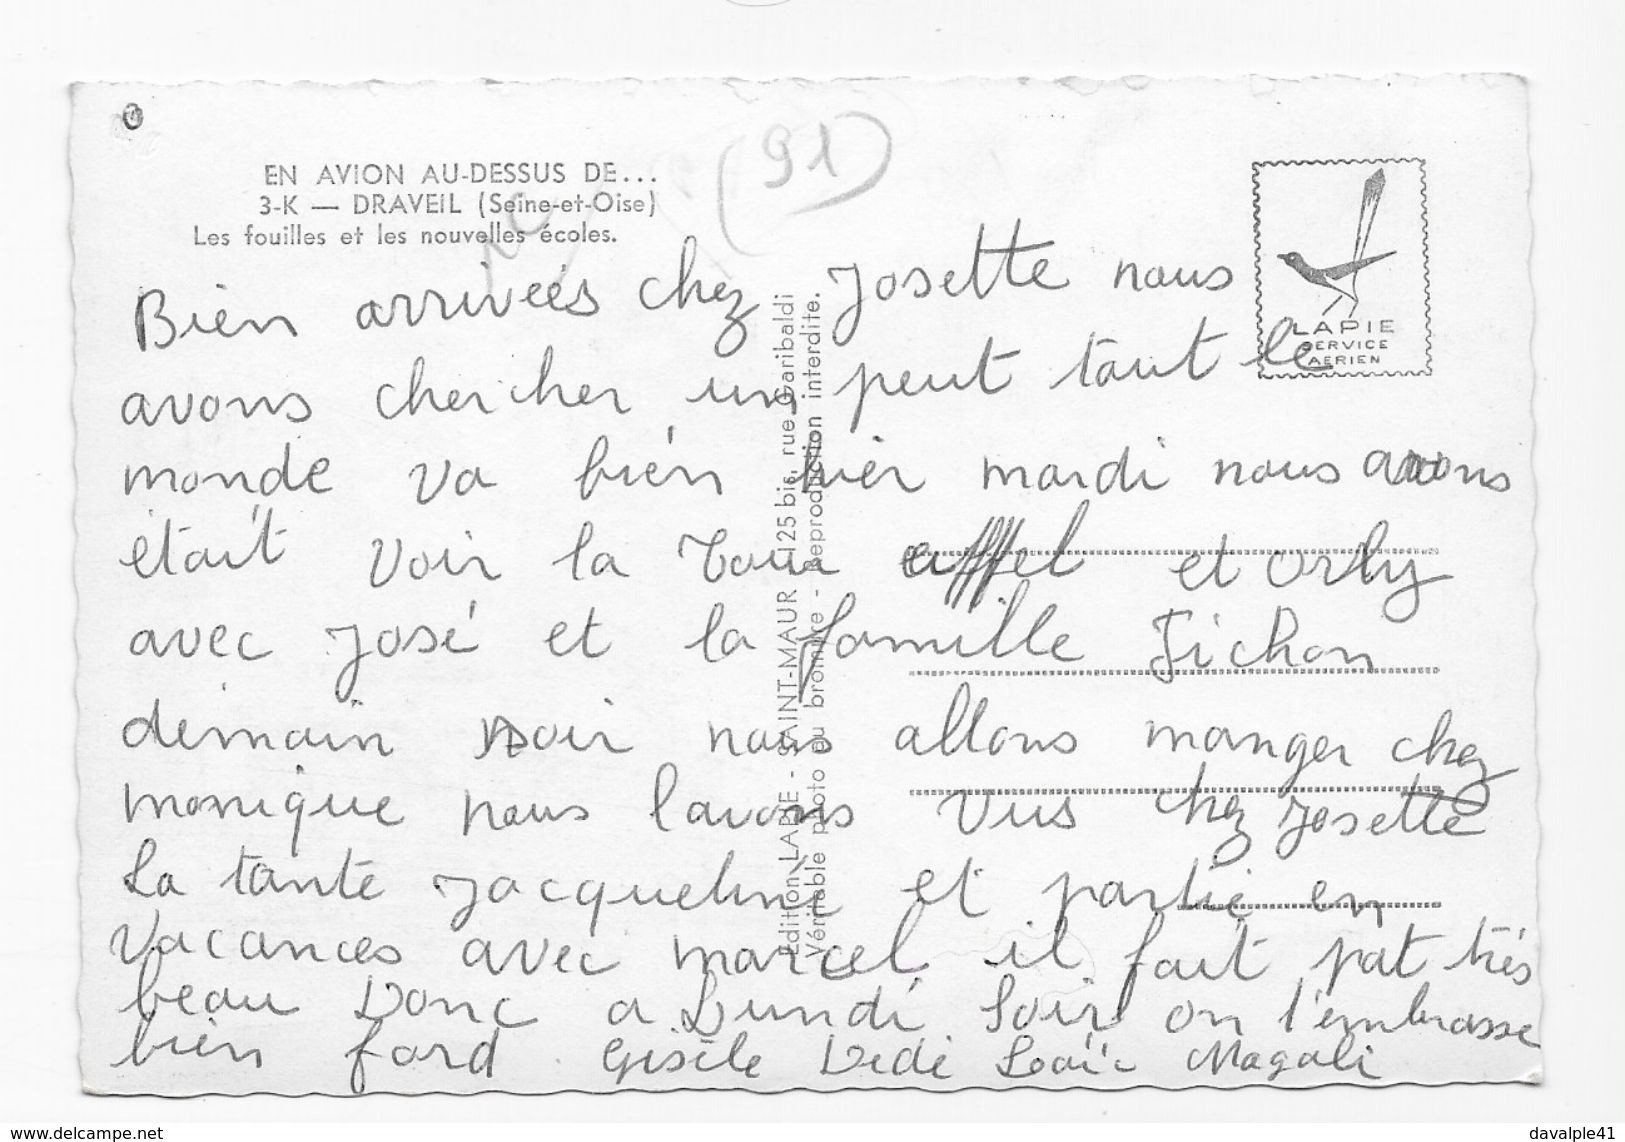 EN AVION AU-DESSUS DE...
3-K — DRAVEIL (Seine-et-Oise)
Les fouilles et les nouvelles écoles.
(91)
LAPIE
SERVICE
AERIEN
Edition LAPIE - SAINT-MAUR 125 bis, rue Garibaldi
Véritable photo au bromure - Reproduction interdite.
Bien arrivées chez Josette nous
avons chercher un peut tout le
monde va bien hier mardi nous avons
était voir la Tour effel et orly
avec José et la famille Fichon
demain soir nous allons manger chez
monique nous lavons vus chez Josette
La tante Jacqueline et partie en
vacances avec marcel il fait pat très
beau Donc a Lundi Soir on t'embrasse
bien ford. Gisèle Dédé Loïc Magali
www.delcampe.net
davalple41